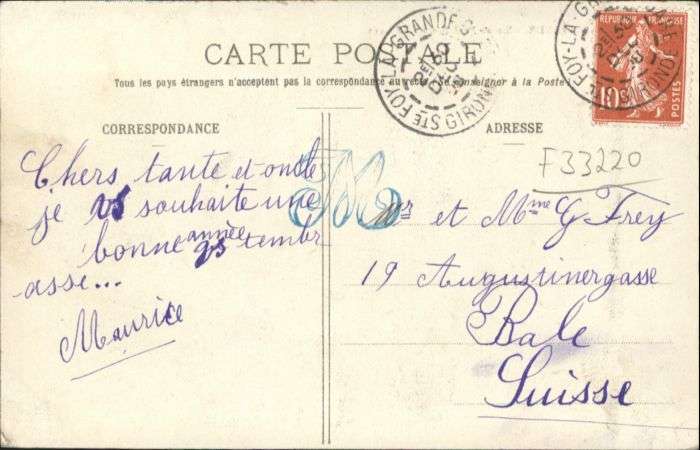 CARTE POSTALE
Tous les pays étrangers n'acceptent pas la correspondance au recto (Se renseigner à la Poste)
CORRESPONDANCE
Chers tante et oncle
je vs souhaite une
bonne année vs
asse...
Maurice
ADRESSE
F33220
Mr et Mme G Frey
19 Augustinergasse
Bale
Suisse
STE FOY-LA-GRANDE GIRONDE
STE FOY-LA-GRANDE GIRONDE
REPUBLIQUE FRANÇAISE
POSTES
10c